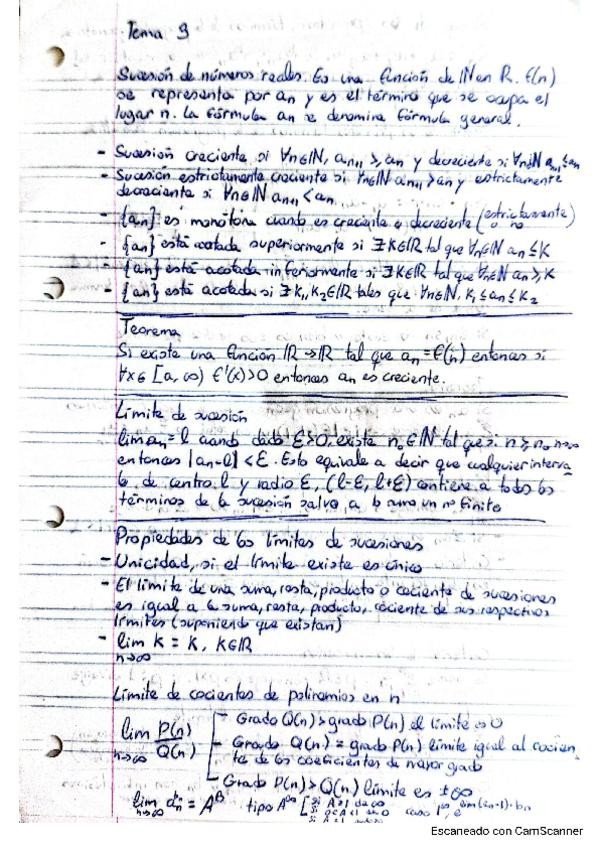 Tema 9
Sucesión de números reales. Es una función de ℕ en R. f(n)
se representa por an y es el término que se ocupa el
lugar n. La fórmula an se denomina fórmula general.
- Sucesión creciente si ∀n∈ℕ, an+1 ≥ an y decreciente si ∀n∈ℕ an+1 ≤ an
- Sucesión estrictamente creciente si ∀n∈ℕ an+1 > an y estrictamente
decreciente si ∀n∈ℕ an+1 < an
- {an} es monótona cuando es creciente o decreciente (estrictamente o no)
- {an} está acotada superiormente si ∃K∈ℝ tal que ∀n∈ℕ an ≤ K
- {an} está acotada inferiormente si ∃K∈ℝ tal que ∀n∈ℕ an ≥ K
- {an} está acotada si ∃ K1, K2∈ℝ tales que ∀n∈ℕ, K1 ≤ an ≤ K2
Teorema
Si existe una función ℝ→ℝ tal que an = f(n) entonces si
∀x∈ [a, ∞) f'(x)>0 entonces an es creciente.
Límite de sucesión
lim an = l cuando dado ε>0, existe n0∈ℕ tal que si n ≥ n0
entonces |an-l| < ε. Esto equivale a decir que cualquier interva
lo, de centro l y radio ε, (l-ε, l+ε) contiene a todos los
términos de la sucesión salvo a lo sumo un nº finito
Propiedades de los límites de sucesiones
- Unicidad, si el límite existe es único
- El límite de una suma, resta, producto o cociente de sucesiones
es igual a la suma, resta, producto, cociente de sus respectivos
límites (suponiendo que existan)
- lim K = K, K∈ℝ
n→∞
Límite de cocientes de polinomios en n
lim P(n)/Q(n)
n→∞
- Grado Q(n) > grado P(n) el límite es 0
- Grado Q(n) = grado P(n) límite igual al cocien
te de los coeficientes de mayor grado
- Grado P(n) > Q(n) límite es ±∞
lim an^bn = A^B tipo A^∞ [si A>1 da ∞
n→∞
Escaneado con CamScanner